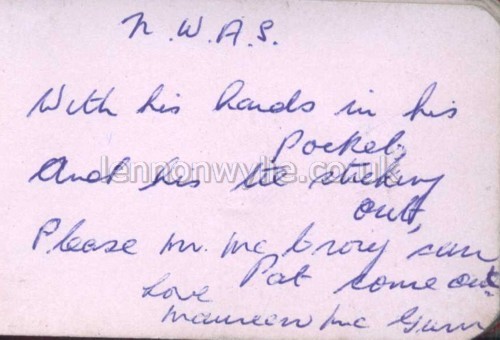 N.W.A.S.
With his hands in his
Pocket
And his tie sticking
out,
Please Mr. Mc Crory can
Pat come out
Love
Maureen Mc Gurn
lennonwylie.co.uk